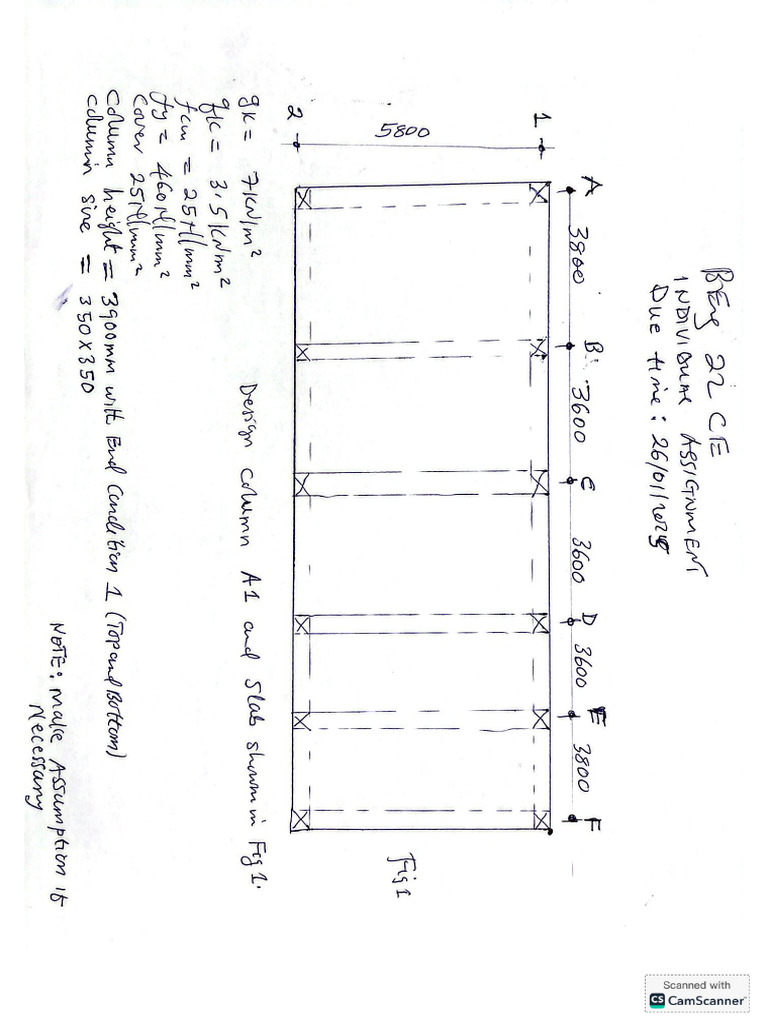 BEng 22 CE
INDIVIDUAL ASSIGNMENT
Due time: 26/01/2025
A B C D E F
3800 3600 3600 3600 3800
1
5800
2
Fig 1
gk = 7kN/m²
qk = 3.5kN/m²
fcu = 25N/mm²
fy = 460N/mm²
cover 25N/mm²
Column height = 3900mm with End Condition 1 (Top and Bottom)
column size = 350x350
Design column A1 and Slab shown in Fig 1.
NOTE: make Assumption if
Necessary
Scanned with
CS CamScanner